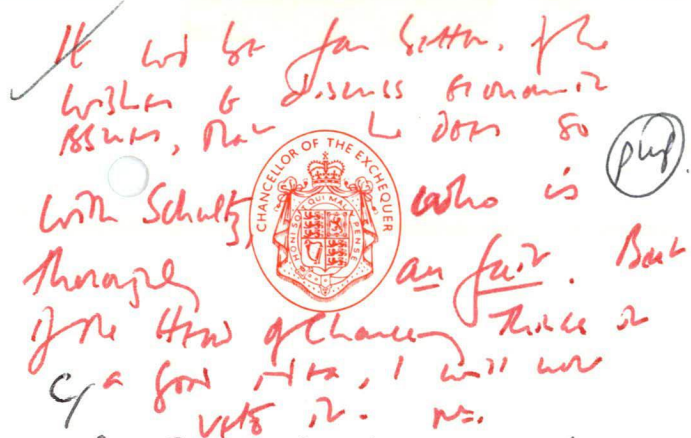 It wd be far better, if he
wishes to discuss economic
issues, that he does so
with Schultz, who is
thoroughly au fait. But
if the Head of Chancery thinks it
a good idea, I will not
veto it.
CHANCELLOR OF THE EXCHEQUER
HONI SOIT QUI MAL Y PENSE